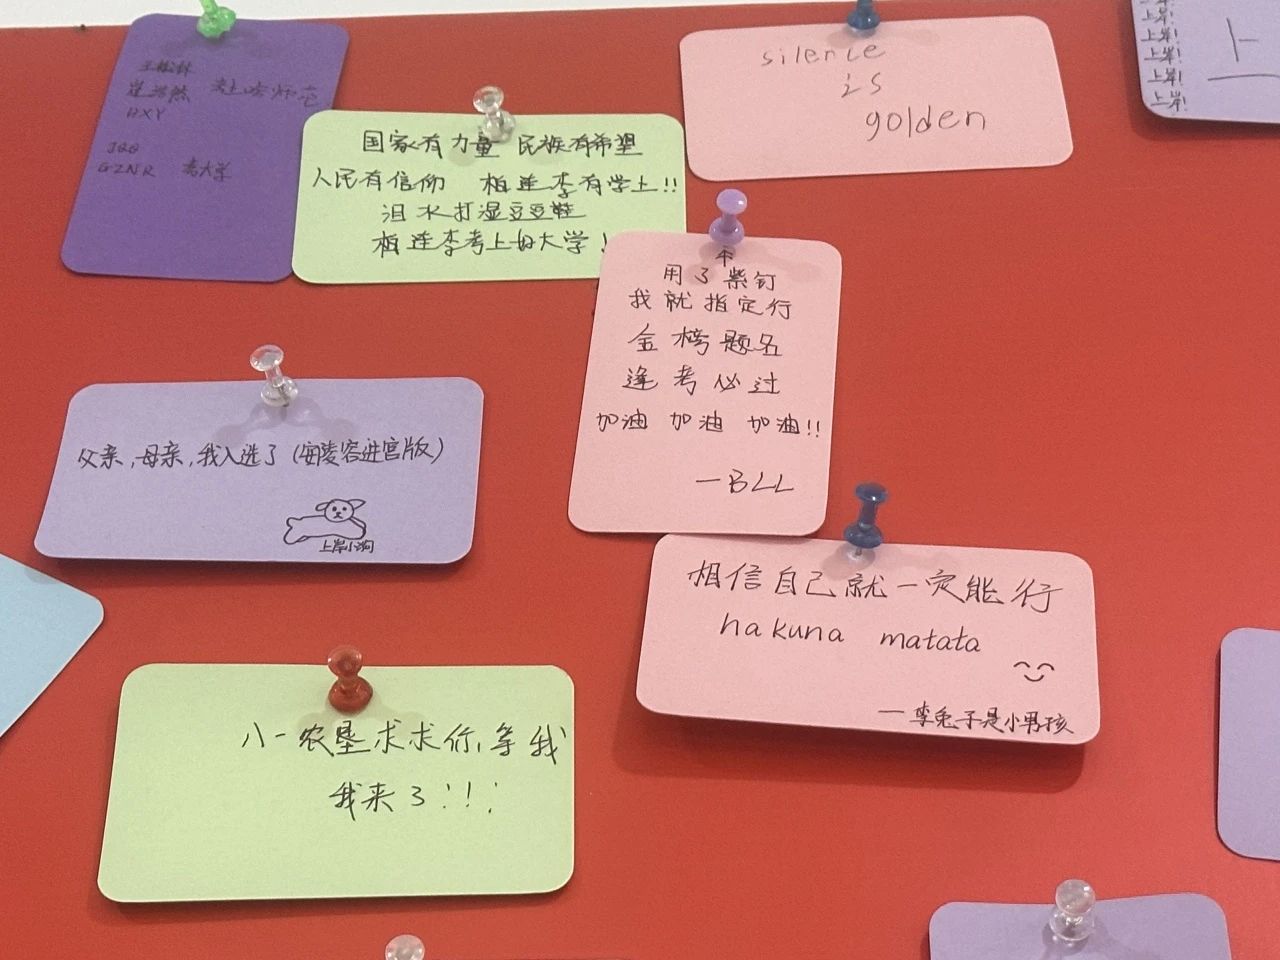 崔浩然 考上哈师范
HXY
JQQ
GZNR 考大学
国家有力量 民族有希望
人民有信仰 柏连李有学上!!
泪水打湿豆豆鞋
柏连李考上好大学!
silence
is
golden
上岸!
上岸!
上岸!
上岸!
上岸!
用了紫钉
我就指定行
金榜题名
逢考必过
加油 加油 加油!!
—BLL
父亲,母亲,我入选了(安陵容进宫版)
上岸小狗
相信自己就一定能行
hakuna matata
—李兔子是小男孩
八一农垦求求你,等我
我来了!!!